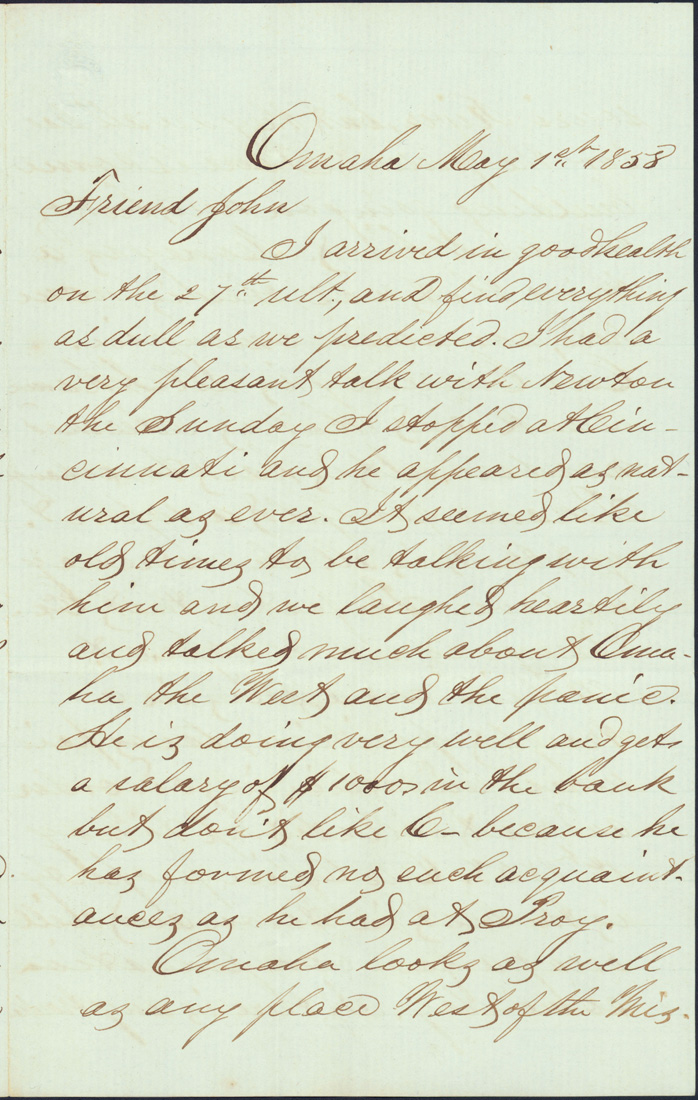 Omaha May 1st. 1858
Friend John
I arrived in good health
on the 27th ult., and find everything
as dull as we predicted. I had a
very pleasant talk with Newton
the Sunday I stopped at Cin-
cinnati and he appeared as nat-
ural as ever. It seemed like
old times to be talking with
him and we laughed heartily
and talked much about Oma-
ha the West and the panic.
He is doing very well and gets
a salary of $1000 in the bank
but don't like C- because he
has formed no such acquaint-
ances as he had at Troy.
Omaha looks as well
as any place West of the Mis-